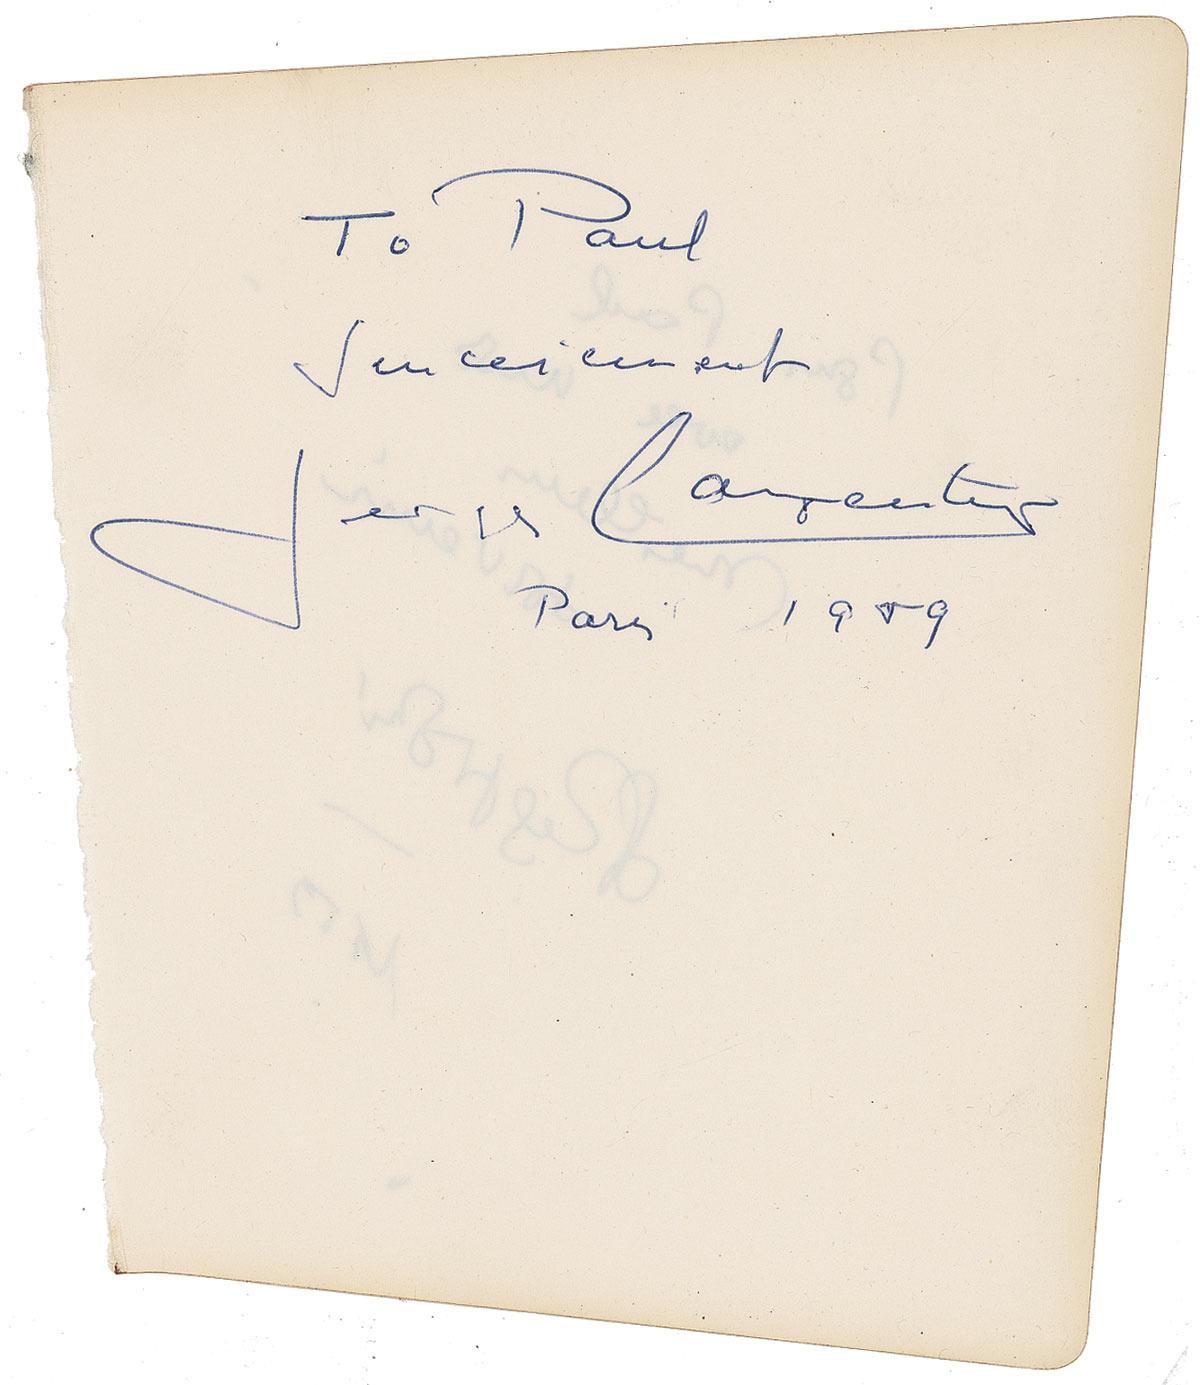 To Paul
Sincerement
Georges Carpentier
Paris 1959